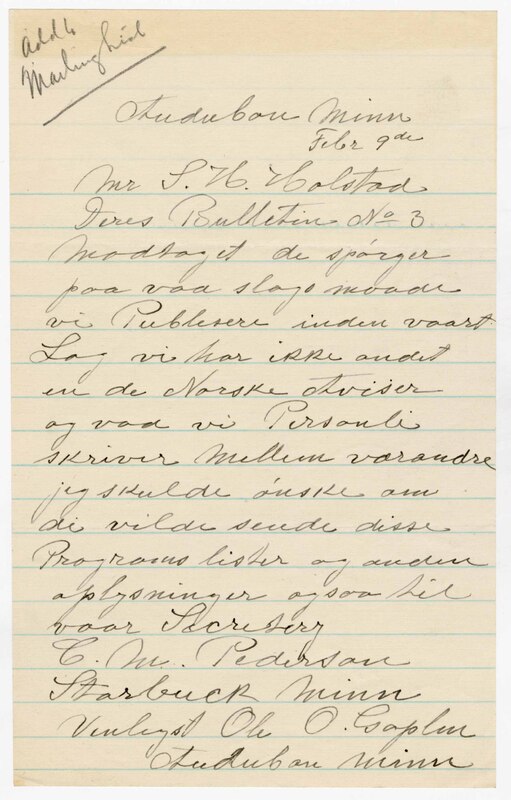 add to
Mailing list
Audubon Minn
Febr 9de
Mr S. H. Holstad
Deres Bulletin No 3
Modtaget de spørger
paa vaa slags maade
vi Publisere inden vaart
Lag vi har ikke andet
en de Norske Aviser
og vad vi Personli
skriver Mellem værandre
jeg skulde ønske om
di vilde sende disse
Programs lister og anden
oplysninger ogsaa til
vaar Secretery
C. M. Pederson
Starbuck Minn
Venligst Ole O. Gaplin
Audubon Minn